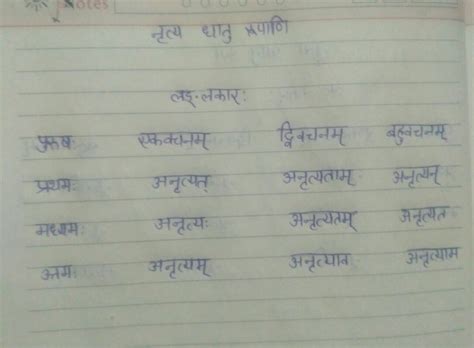 Notes
नृत्य धातु रूपाणि
लङ्-लकार:
पुरुष: एकवचनम् द्विवचनम् बहुवचनम्
प्रथम: अनृत्यत् अनृत्यताम् अनृत्यन्
मध्यम: अनृत्य: अनृत्यतम् अनृत्यत
उत्तम: अनृत्यम् अनृत्याव अनृत्याम